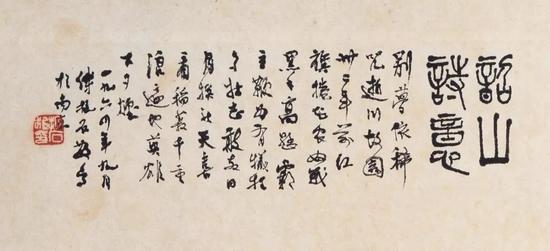 韶山
詩意
别夢依稀
咒逝川故園
卅二年前红
旗捲起农奴戟
黑手高懸霸
主鞭为有犧牲
多壮志敢教日
月换新天喜
看稻菽千重
浪遍地英雄
下夕煙
一九六四年九月
傅抱石
於南京